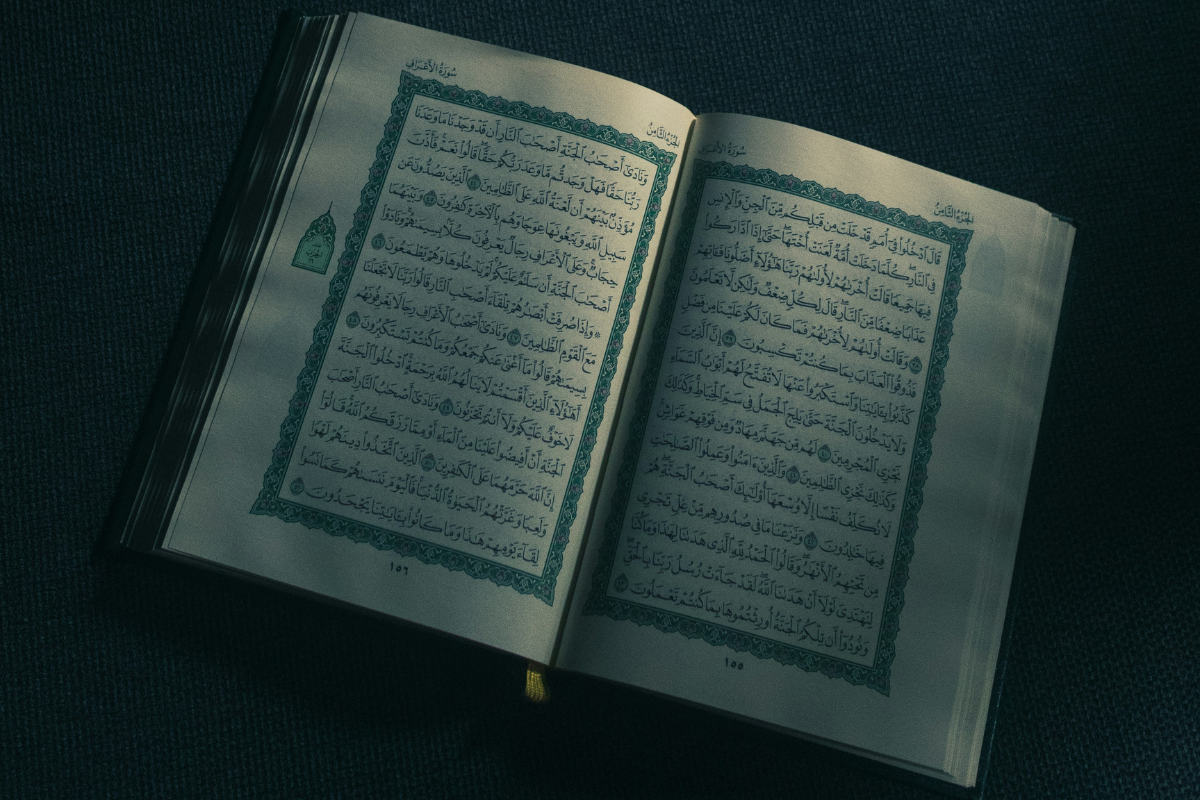 الجُزْءُ الثَّامِنُ
سُورَةُ الأَعْرَافِ
قَالَ ٱدْخُلُوا۟ فِىٓ أُمَمٍ قَدْ خَلَتْ مِن قَبْلِكُم مِّنَ ٱلْجِنِّ وَٱلْإِنسِ
فِى ٱلنَّارِۖ كُلَّمَا دَخَلَتْ أُمَّةٌ لَّعَنَتْ أُخْتَهَاۖ حَتَّىٰٓ إِذَا ٱدَّارَكُوا۟
فِيهَا جَمِيعًا قَالَتْ أُخْرَىٰهُمْ لِأُولَىٰهُمْ رَبَّنَا هَٰٓؤُلَآءِ أَضَلُّونَا فَـَٔاتِهِمْ
عَذَابًا ضِعْفًا مِّنَ ٱلنَّارِۖ قَالَ لِكُلٍّ ضِعْفٌ وَلَٰكِن لَّا تَعْلَمُونَ
٣٨ وَقَالَتْ أُولَىٰهُمْ لِأُخْرَىٰهُمْ فَمَا كَانَ لَكُمْ عَلَيْنَا مِن فَضْلٍ
فَذُوقُوا۟ ٱلْعَذَابَ بِمَا كُنتُمْ تَكْسِبُونَ ٣٩ إِنَّ ٱلَّذِينَ
كَذَّبُوا۟ بِـَٔايَٰتِنَا وَٱسْتَكْبَرُوا۟ عَنْهَا لَا تُفَتَّحُ لَهُمْ أَبْوَٰبُ ٱلسَّمَآءِ
وَلَا يَدْخُلُونَ ٱلْجَنَّةَ حَتَّىٰ يَلِجَ ٱلْجَمَلُ فِى سَمِّ ٱلْخِيَاطِۚ وَكَذَٰلِكَ
نَجْزِى ٱلْمُجْرِمِينَ ٤٠ لَهُم مِّن جَهَنَّمَ مِهَادٌ وَمِن فَوْقِهِمْ غَوَاشٍۚ
وَكَذَٰلِكَ نَجْزِى ٱلظَّٰلِمِينَ ٤١ وَٱلَّذِينَ ءَامَنُوا۟ وَعَمِلُوا۟ ٱلصَّٰلِحَٰتِ
لَا نُكَلِّفُ نَفْسًا إِلَّا وُسْعَهَآ أُو۟لَٰٓئِكَ أَصْحَٰبُ ٱلْجَنَّةِۖ هُمْ
فِيهَا خَٰلِدُونَ ٤٢ وَنَزَعْنَا مَا فِى صُدُورِهِم مِّنْ غِلٍّ تَجْرِى
مِن تَحْتِهِمُ ٱلْأَنْهَٰرُۖ وَقَالُوا۟ ٱلْحَمْدُ لِلَّهِ ٱلَّذِى هَدَىٰنَا لِهَٰذَا وَمَا كُنَّا
لِنَهْتَدِىَ لَوْلَآ أَنْ هَدَىٰنَا ٱللَّهُۖ لَقَدْ جَآءَتْ رُسُلُ رَبِّنَا بِٱلْحَقِّۖ
وَنُودُوٓا۟ أَن تِلْكُمُ ٱلْجَنَّةُ أُورِثْتُمُوهَا بِمَا كُنتُمْ تَعْمَلُونَ ٤٣
١٥٥
الجُزْءُ الثَّامِنُ
سُورَةُ الأَعْرَافِ
وَنَادَىٰٓ أَصْحَٰبُ ٱلْجَنَّةِ أَصْحَٰبَ ٱلنَّارِ أَن قَدْ وَجَدْنَا مَا وَعَدَنَا
رَبُّنَا حَقًّا فَهَلْ وَجَدتُّم مَّا وَعَدَ رَبُّكُمْ حَقًّاۖ قَالُوا۟ نَعَمْۚ فَأَذَّنَ
مُؤَذِّنٌۢ بَيْنَهُمْ أَن لَّعْنَةُ ٱللَّهِ عَلَى ٱلظَّٰلِمِينَ ٤٤ ٱلَّذِينَ يَصُدُّونَ عَن
سَبِيلِ ٱللَّهِ وَيَبْغُونَهَا عِوَجًا وَهُم بِٱلْءَاخِرَةِ كَٰفِرُونَ ٤٥ وَبَيْنَهُمَا
حِجَابٌۚ وَعَلَى ٱلْأَعْرَافِ رِجَالٌ يَعْرِفُونَ كُلًّۢا بِسِيمَىٰهُمْۚ وَنَادَوْا۟
أَصْحَٰبَ ٱلْجَنَّةِ أَن سَلَٰمٌ عَلَيْكُمْۚ لَمْ يَدْخُلُوهَا وَهُمْ يَطْمَعُونَ ٤٦
۞ وَإِذَا صُرِفَتْ أَبْصَٰرُهُمْ تِلْقَآءَ أَصْحَٰبِ ٱلنَّارِ قَالُوا۟ رَبَّنَا لَا تَجْعَلْنَا
مَعَ ٱلْقَوْمِ ٱلظَّٰلِمِينَ ٤٧ وَنَادَىٰٓ أَصْحَٰبُ ٱلْأَعْرَافِ رِجَالًا يَعْرِفُونَهُم
بِسِيمَىٰهُمْ قَالُوا۟ مَآ أَغْنَىٰ عَنكُمْ جَمْعُكُمْ وَمَا كُنتُمْ تَسْتَكْبِرُونَ ٤٨
أَهَٰٓؤُلَآءِ ٱلَّذِينَ أَقْسَمْتُمْ لَا يَنَالُهُمُ ٱللَّهُ بِرَحْمَةٍۚ ٱدْخُلُوا۟ ٱلْجَنَّةَ
لَا خَوْفٌ عَلَيْكُمْ وَلَآ أَنتُمْ تَحْزَنُونَ ٤٩ وَنَادَىٰٓ أَصْحَٰبُ ٱلنَّارِ أَصْحَٰبَ
ٱلْجَنَّةِ أَنْ أَفِيضُوا۟ عَلَيْنَا مِنَ ٱلْمَآءِ أَوْ مِمَّا رَزَقَكُمُ ٱللَّهُۚ قَالُوٓا۟
إِنَّ ٱللَّهَ حَرَّمَهُمَا عَلَى ٱلْكَٰفِرِينَ ٥٠ ٱلَّذِينَ ٱتَّخَذُوا۟ دِينَهُمْ لَهْوًا
وَلَعِبًا وَغَرَّتْهُمُ ٱلْحَيَوٰةُ ٱلدُّنْيَاۚ فَٱلْيَوْمَ نَنسَىٰهُمْ كَمَا نَسُوا۟
لِقَآءَ يَوْمِهِمْ هَٰذَا وَمَا كَانُوا۟ بِـَٔايَٰتِنَا يَجْحَدُونَ ٥١
١٥٦